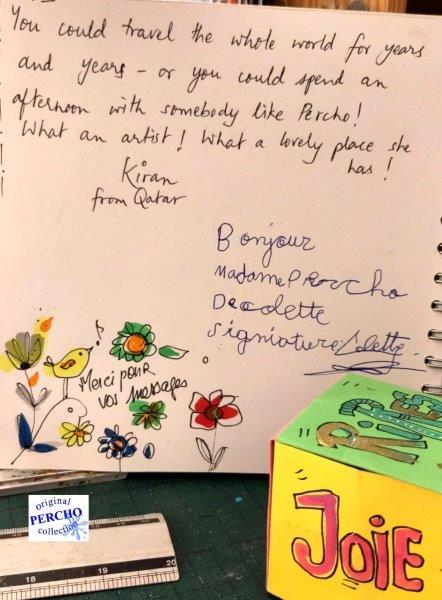 You could travel the whole world for years
and years – or you could spend an
afternoon with somebody like Percho!
What an artist! What a lovely place she
has!
Kiran
from Qatar
Bonjour
Madame Percho
signiature
Merci pour
vos messages
original
PERCHO
collection
JOIE
18 19 20